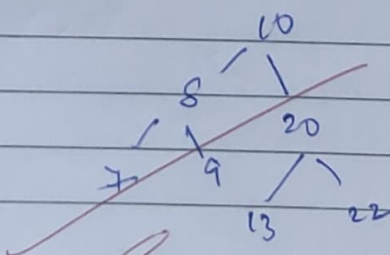 10
8
20
7 9
13 22